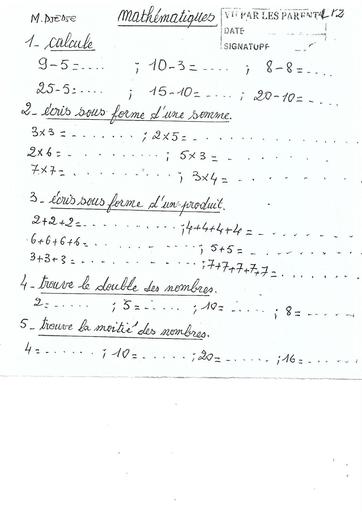 M. DJEDJE mathématiques VU PAR LES PARENTS
DATE
SIGNATURE
1- calcule
9-5=.... ; 10-3=.... ; 8-8=....
25-5=.... ; 15-10=.... ; 20-10=....
2- écris sous forme d'une somme.
3x3=........ ; 2x5=........
2x6=........ ; 5x3=........
7x7=........ ; 3x4=........
3- écris sous forme d'un produit.
2+2+2=........ ; 4+4+4+4=........
6+6+6+6=........ ; 5+5=........
3+3+3=........ ; 7+7+7+7+7=........
4- trouve le double des nombres.
2=..... ; 5=..... ; 10=..... ; 8=.....
5- trouve la moitié des nombres.
4=..... ; 10=..... ; 20=..... ; 16=.....